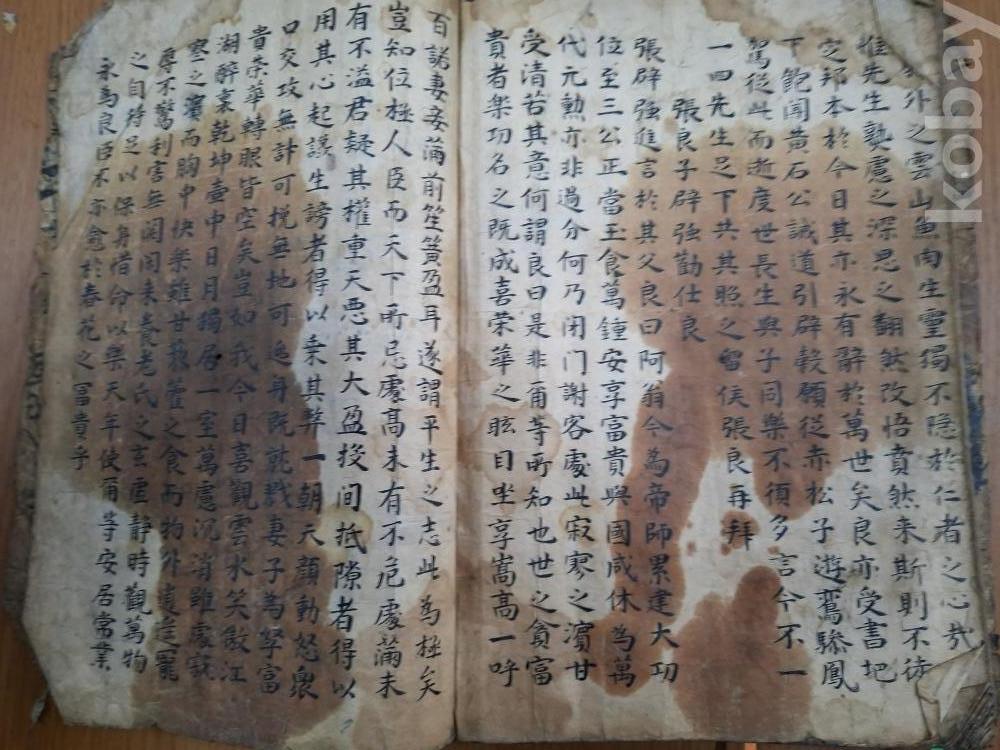 外之雲山魚肉生靈獨不隱於仁者之心哉
惟先生熟慮之深思之翻然改悟賁然来斯則不徒
定邦本於今日其亦永有辭於萬世矣良亦受書圯
下飽聞黄石公誡道引辟穀願從赤松子遊鸞驂鳳
駕從此而逝度世長生與子同樂不須多言今不一
一四先生足下共其照之留侯張良再拜
張良子辟强勸仕良
張辟强進言於其父良曰阿翁今為帝師累建大功
位至三公正當玉食萬鍾安享富貴與國咸休為萬
代元勳亦非過分何乃閉门謝客處此寂寥之濱甘
受清苦其意何謂良曰是非爾等所知也世之貪富
貴者樂功名之既成喜荣華之眩目坐享嵩高一呼
百諾妻妾滿前笙簧盈耳遂謂平生之志此為極矣
豈知位極人臣而天下所忌處髙未有不危處滿未
有不溢君疑其權重天惡其大盈投间抵隙者得以
用其心起謗生謗者得以乗其弊一朝天顔動怒衆
口交攻無計可挽無地可逃身既就戮妻子為孥富
貴荣華轉眼皆空矣豈如我今日喜觀雲水笑傲江
湖醉裏乾坤壷中日月獨居一室萬慮沉消雖處寂
寥之濱而胸中快樂雖甘藜藿之食而物外逍遥寵
辱不驚利害無関闲来養老氏之玄虚静時觀萬物
之自得足以保身惜分以樂天年使爾等安居常業
永為良臣不亦愈於春花之冨貴乎
kobay